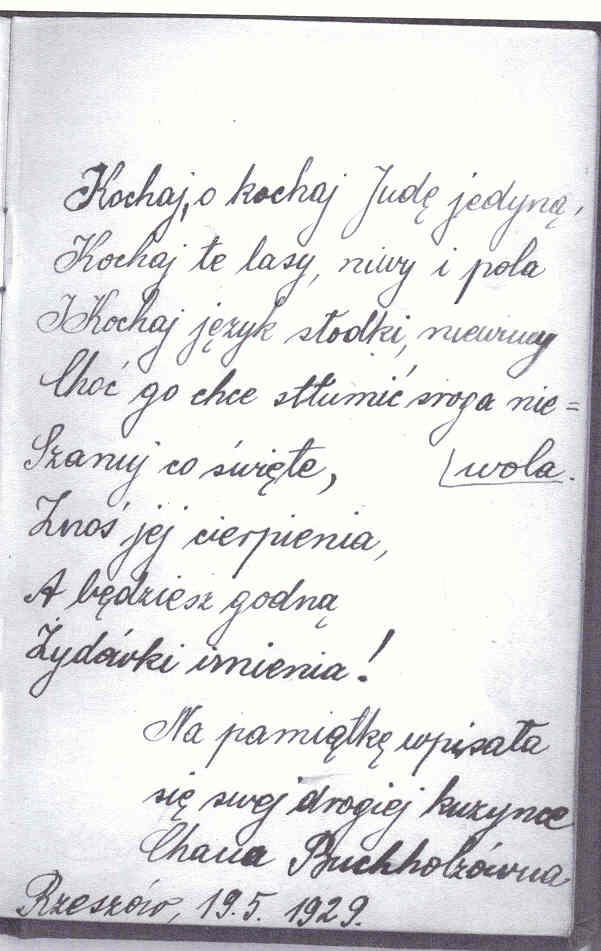 Kochaj, o kochaj Judę jedyną,
Kochaj te lasy, niwy i pola
I Kochaj język słodki, niewinny
Choć go chce stłumić sroga nie=
Szanuj co święte, (wola.
Znoś jej cierpienia,
A będziesz godną
Żydówki imienia!
Na pamiątkę wpisała
się swej drogiej kuzynce
Chana Buchholzówna
Rzeszów, 19.5. 1929.